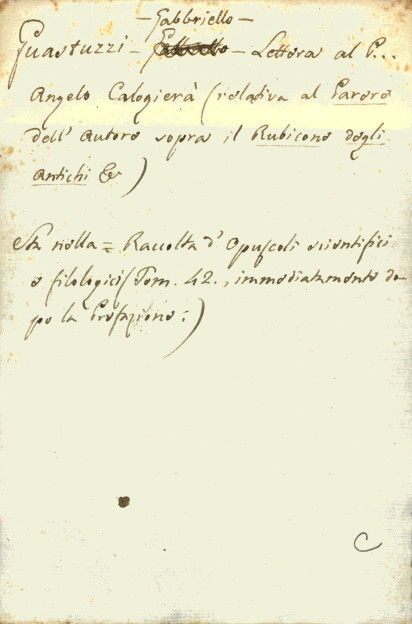 – Gabbriello –
Guastuzzi – – Lettera al P...
Angelo Calogierà (relativa al Parere
dell' Autore sopra il Rubicone degli
antichi &c)
Sta nella = Raccolta d' Opuscoli scientifici
e filologici (Tom. 42., immediatamente do-
po la Prefazione:)
C